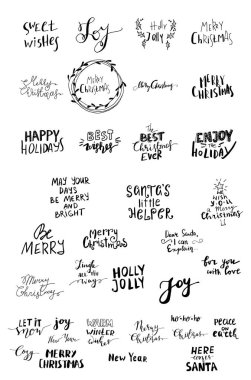 sweet
wishes
Joy
Holly
Jolly
MERRY
CHRISTMAS
Merry
Christmas
MERRY
CHRISTMAS
Merry Christmas
MERRY
CHRISTMAS
HAPPY
HOLIDAYS
BEST
wishes
the
BEST
Christmas
EVER
ENJOY
the
HOLIDAY
MAY YOUR
DAYS
BE MERRY
AND
BRIGHT
SANTA'S
little
HELPER
we
WISH
YOU
a
Merry
Christmas
Be
MERRY
Merry
Christmas
Dear Santa,
I can
Explain
for you
with love
Merry
Christmas
Jingle
all the
way
HOLLY
JOLLY
joy
LET IT
snow
joy
New Year
WARM
winter
wishes
Merry
Christmas
ho-ho-ho
Christmas
PEACE
on
earth
Cozy
MERRY
CHRISTMAS
New Year
HERE
comes
SANTA